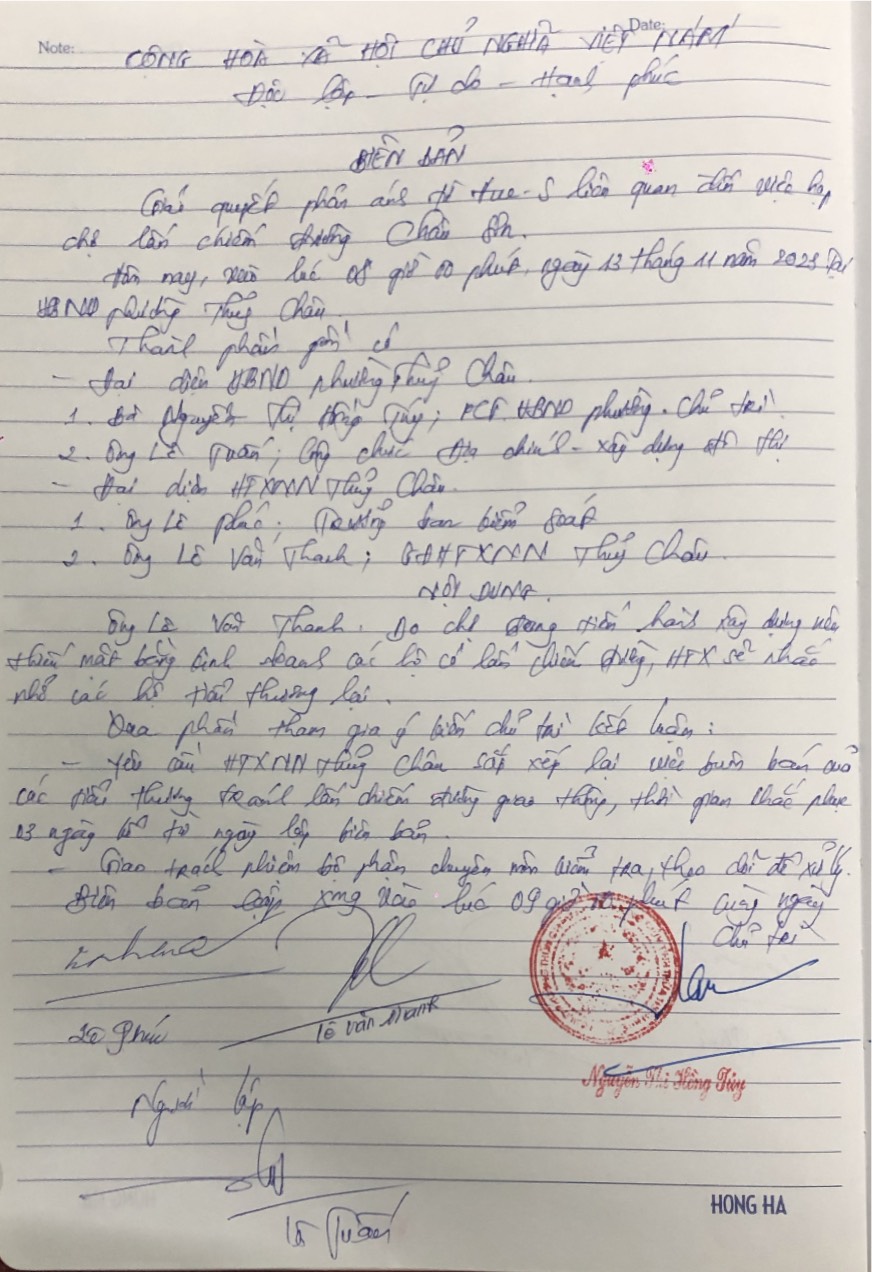 Note:
Date:
CỘNG HOÀ XÃ HỘI CHỦ NGHĨA VIỆT NAM
Độc lập - Tự do - Hạnh phúc
BIÊN BẢN
Giải quyết phản ánh từ Hue-S liên quan đến việc họp
chợ lấn chiếm đường Châu Sơn.
Hôm nay, vào lúc 08 giờ 00 phút, ngày 13 tháng 11 năm 2023 tại
UBND phường Thuỷ Châu.
Thành phần gồm có
- Đại diện UBND phường Thuỷ Châu.
1. Bà Nguyễn Thị Hồng Túy; PCT UBND phường. Chủ trì.
2. Ông Lê Tuấn; Công chức Địa chính - xây dựng đô thị
- Đại diện HTXNN Thuỷ Châu.
1. Ông Lê Phúc; Trưởng ban kiểm soát
2. Ông Lê Văn Thanh; GĐHTXNN Thuỷ Châu.
NỘI DUNG.
Ông Lê Văn Thanh. Do chợ đang tiến hành xây dựng nên
thiếu mặt bằng kinh doanh các hộ có lấn chiếm đường, HTX sẽ nhắc
nhở các hộ tiểu thương lại.
Qua phần tham gia ý kiến chủ trì kết luận:
- Yêu cầu HTXNN Thuỷ Châu sắp xếp lại việc buôn bán của
các tiểu thương tránh lấn chiếm đường giao thông, thời gian khắc phục
03 ngày kể từ ngày lập biên bản.
- Giao trách nhiệm bộ phận chuyên môn kiểm tra, theo dõi để xử lý.
Biên bản lập xong vào lúc 09 giờ phút cùng ngày
Chủ trì
Lê Phúc
Lê Văn Thanh
Nguyễn Thị Hồng Túy
Người lập
Lê Tuấn
HONG HA